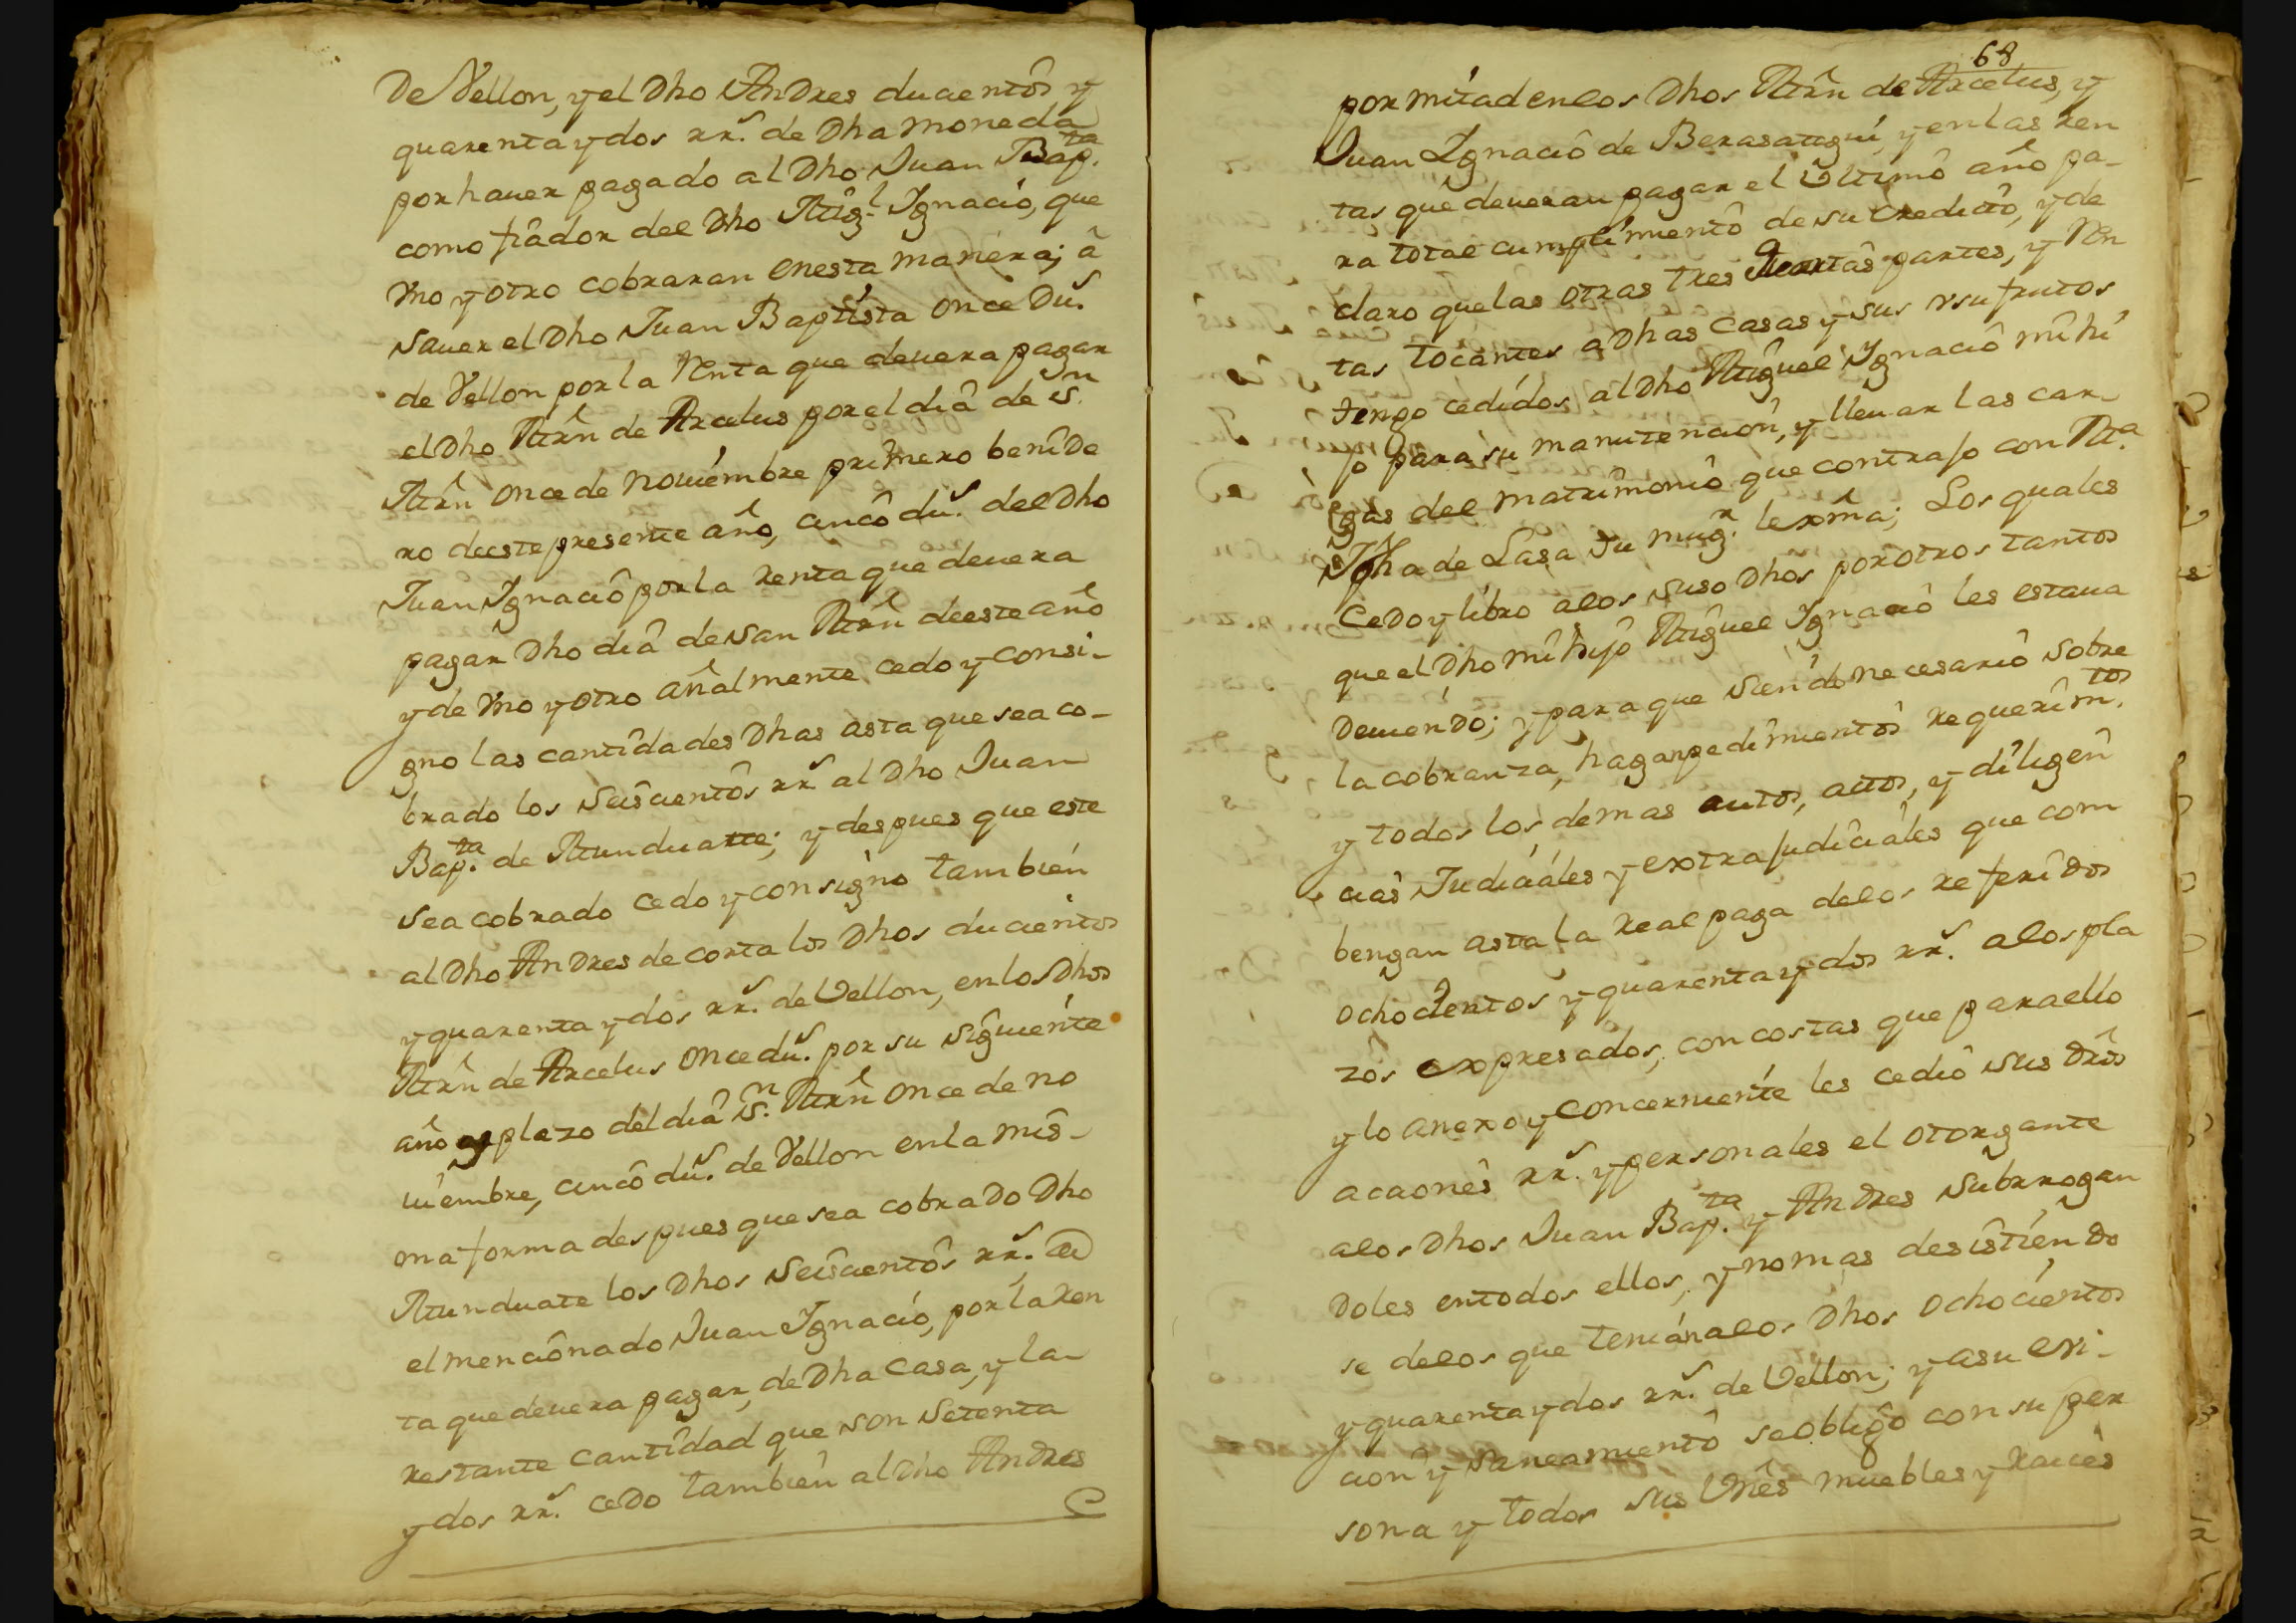 de Vellon, y el dho Andres ducientos y
quarenta y dos rr.s de dha moneda
por hauer pagado al dho Juan Bap.ta
como fiador del dho Mig.l Ignacio, que
vno y otro cobraran en esta manera; â
sauer el dho Juan Baptista once du.s
de Vellon por la renta que deuera pagar
el dho Mrn de Arcelus por el dia de S.n
Mrn once de Nouiembre primero benide
ro deeste presente año, cinco du.s del dho
Juan Ignacio por la renta que deuera
pagar dho dia de San Mrn deeste año
y de vno y otro añalmente cedo y consi-
gno las cantidades dhas asta que sea co-
brado los seiscientos rr.s al dho Juan
Bap.ta de Munduate; y despues que este
sea cobrado cedo y consigno tambien
al dho Andres de corta los dhos ducientos
y quarenta y dos rr.s de Vellon, en los dhos
Mrn de Arcelus once du.s por su siguiente
año plazo del dia S.n Mrn once de no
uiembre, cinco du.s de Vellon en la mis-
ma forma despues que sea cobrado dho
Munduate los dhos seiscientos rr.s en
el mencionado Juan Ignacio, por la ren
ta que deuera pagar, de dha casa, y la
restante cantidad que son setenta
y dos rr.s cedo tambien al dho Andres
68
por mitad en los dhos Mrn de Arcelus, y
Juan Ignacio de Berasategui, y en las ren
tas que deueran pagar el vltimo año pa-
ra total cumplimiento de su credicto, y de
claro que las otras tres quartas partes, y ren
tas tocantes a dhas casas y sus vsufrutos
tengo cedidos al dho Miguel Ignacio mi hi
jo para su manutencion, y lleuar las car-
gas del matrimonio que contrajo con M.a
Ign.a de Lasa su mug.r lexma; Los quales
cedo y libro a los suso dhos por otros tantos
que el dho mi hijo Miguel Ignacio les estaua
deuiendo; y para que siendo necesario sobre
la cobranza, hagan pedimientos requerim.tos
y todos los demas autos, actos, y diligen
cias Judiciales y extrajudiciales que com
bengan asta la real paga de los referidos
ochocientos y quarenta y dos rr.s a los pla
zos expresados, con costas que para ello
y lo anexo y concerniente les cedio sus dros
acciones rr.s y personales el otorgante
a los dhos Juan Bap.ta y Andres subrrogan
doles en todos ellos, y no mas desistiendo
se de los que tenian a los dhos ochocientos
y quarenta y dos rr.s de Vellon; y a su evi-
cion y saneamiento se obligo con su per
sona y todos sus vnes muebles y raices